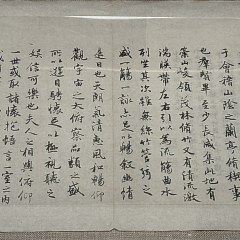 于會稽山陰之蘭亭脩稧事
也羣賢畢至少長咸集此地有
崇山峻領茂林脩竹又有清流激
湍暎帶左右引以為流觴曲水
列坐其次雖無絲竹管弦之
盛一觴一詠亦足以暢敘幽情
是日也天朗氣清惠風和暢仰
觀宇宙之大俯察品類之盛
所以遊目騁懷足以極視聽之
娛信可樂也夫人之相與俯仰
一世或取諸懷抱悟言一室之內